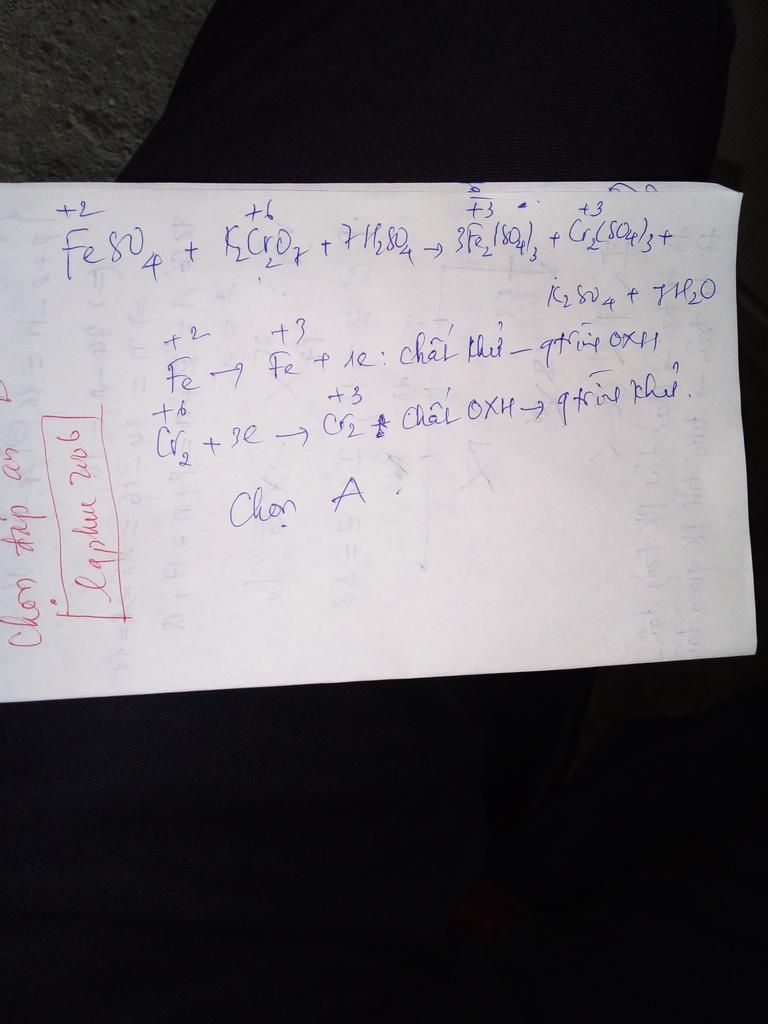 +2 +6 +3 +3
FeSO4 + K2Cr2O7 + 7H2SO4 → 3Fe2(SO4)3 + Cr2(SO4)3 +
K2SO4 + 7H2O
+2 +3
Fe → Fe + 1e : chất khử – qtrình OXH
+6 +3
Cr2 + 3e → Cr2 chất OXH → qtrình khử.
Chọn A.
Chọn đáp án
lqphuc 2006